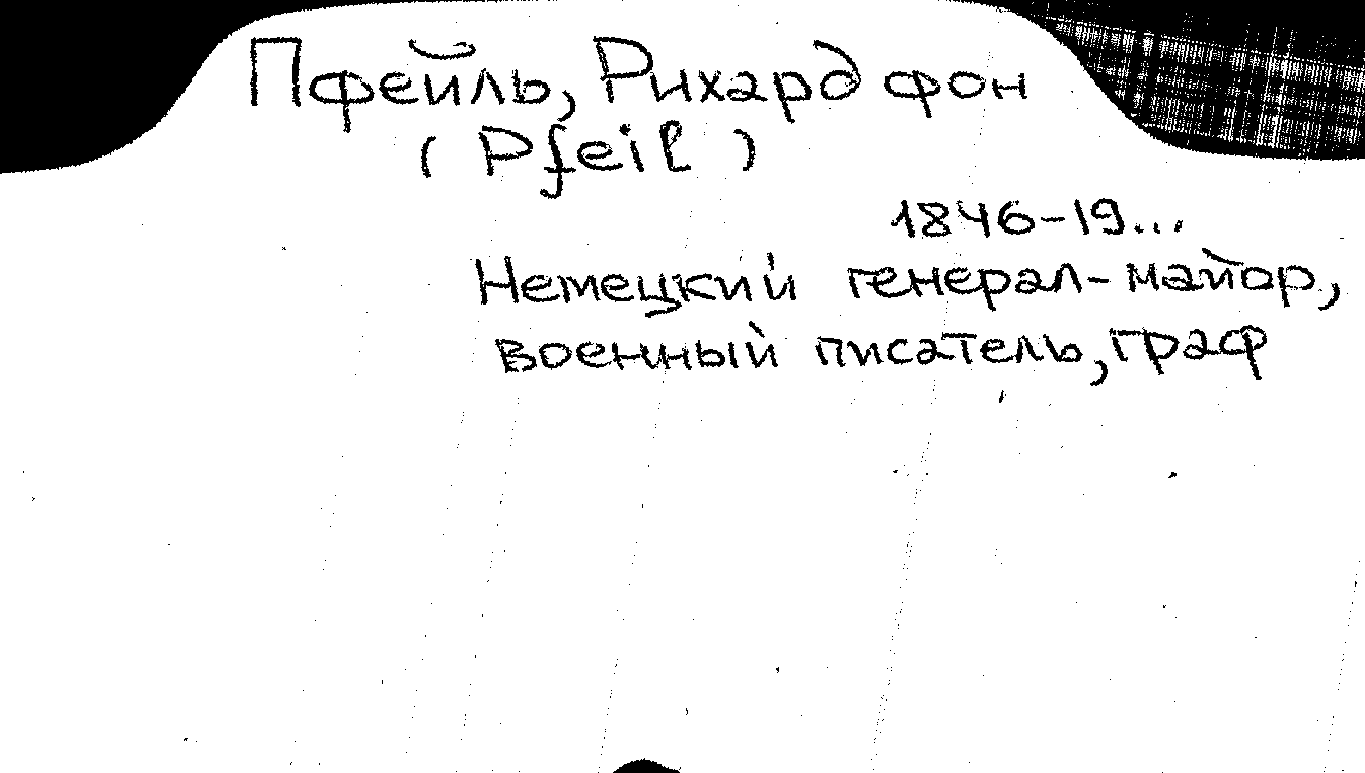 Пфейль, Рихард фон
(Pfeil)
1846-19...
Немецкий генерал-майор,
военный писатель, граф